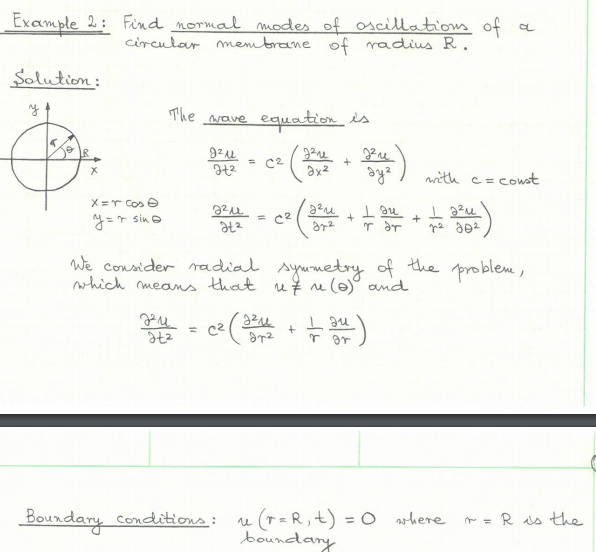 Example 2: Find normal modes of oscillations of a
circular membrane of radius R.
Solution:
The wave equation is
y
r θ R
x
∂²u/∂t² = c² (∂²u/∂x² + ∂²u/∂y²) with c = const
x = r cos θ
y = r sin θ
∂²u/∂t² = c² (∂²u/∂r² + 1/r ∂u/∂r + 1/r² ∂²u/∂θ²)
We consider radial symmetry of the problem,
which means that u ≠ u(θ) and
∂²u/∂t² = c² (∂²u/∂r² + 1/r ∂u/∂r)
Boundary conditions: u (r = R, t) = 0 where r = R is the
boundary